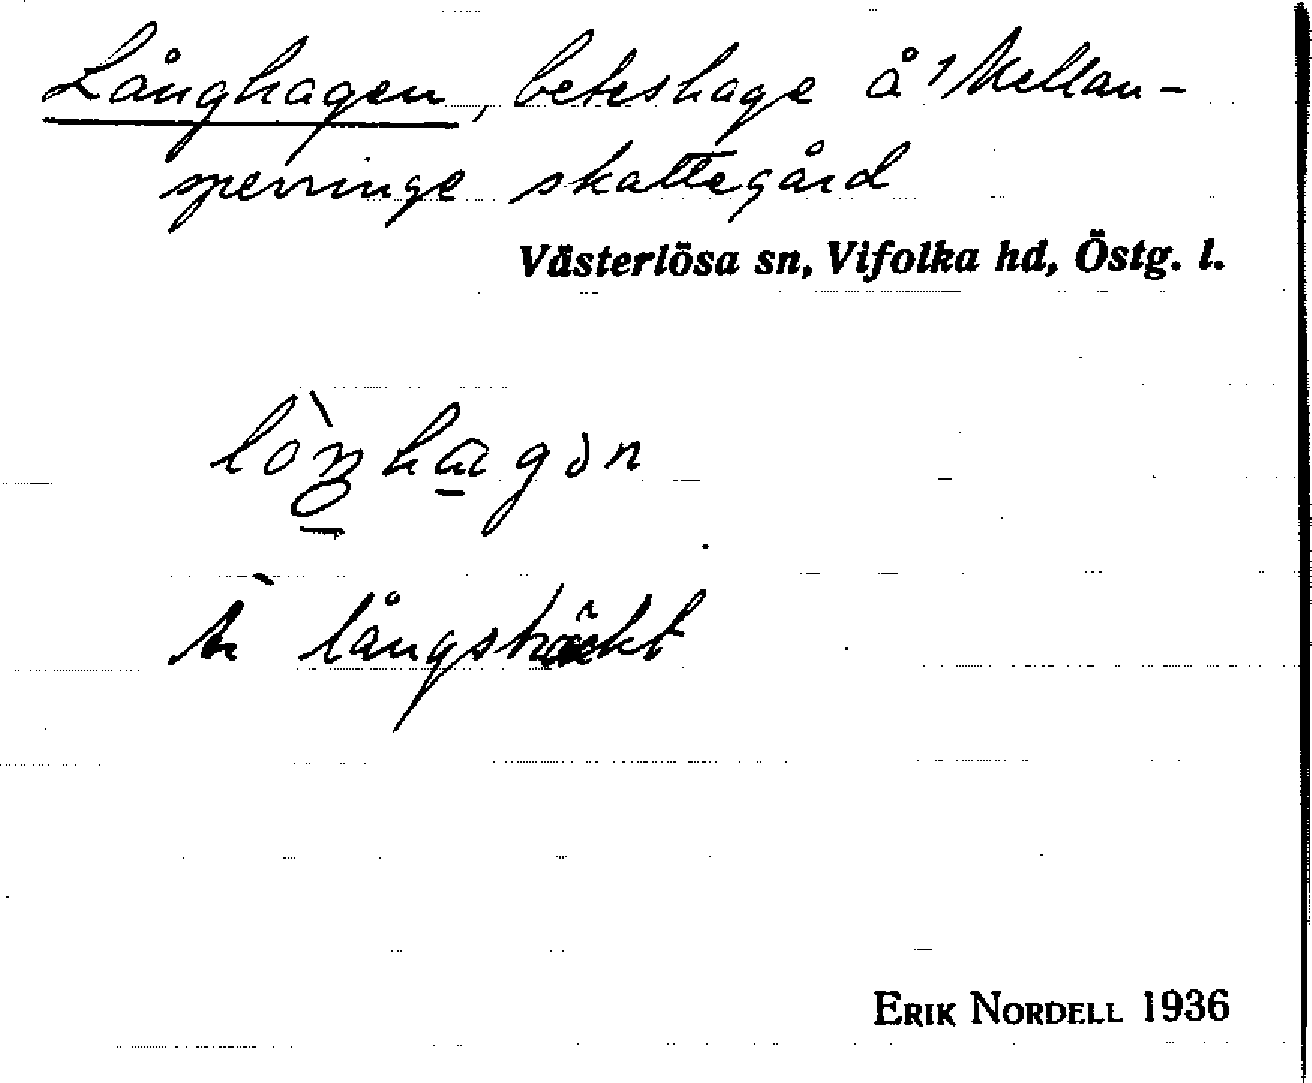 Långhagen, beteshage å Mellan-
sperringe skattegård
Västerlösa sn, Vifolka hd, Östg. l.
lòŋhagən
Är långsträckt
ERIK NORDELL 1936